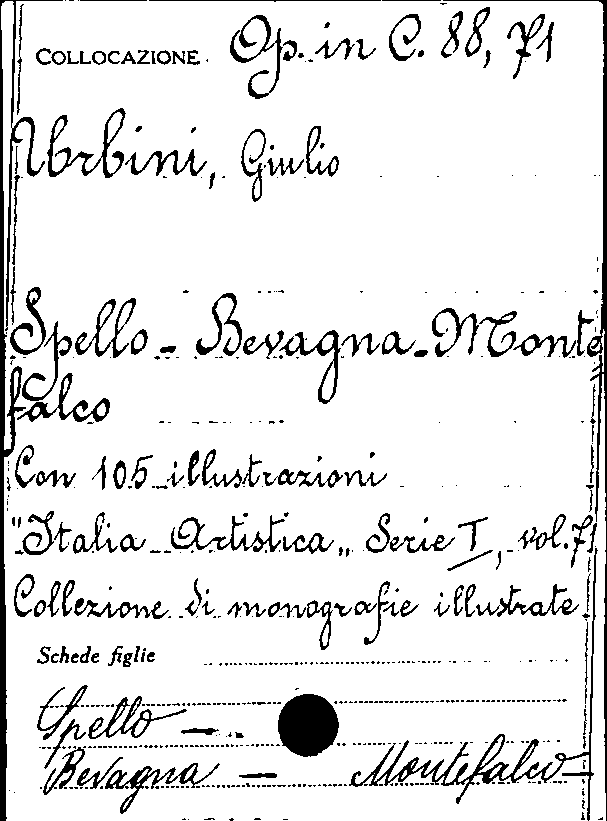 COLLOCAZIONE. Op. in C. 88, 71
Urbini, Giulio
Spello - Bevagna - Monte=
falco
Con 105 illustrazioni
"Italia Artistica„ Serie I, vol. 71
Collezione di monografie illustrate
Schede figlie
Spello —
Bevagna — Montefalco —